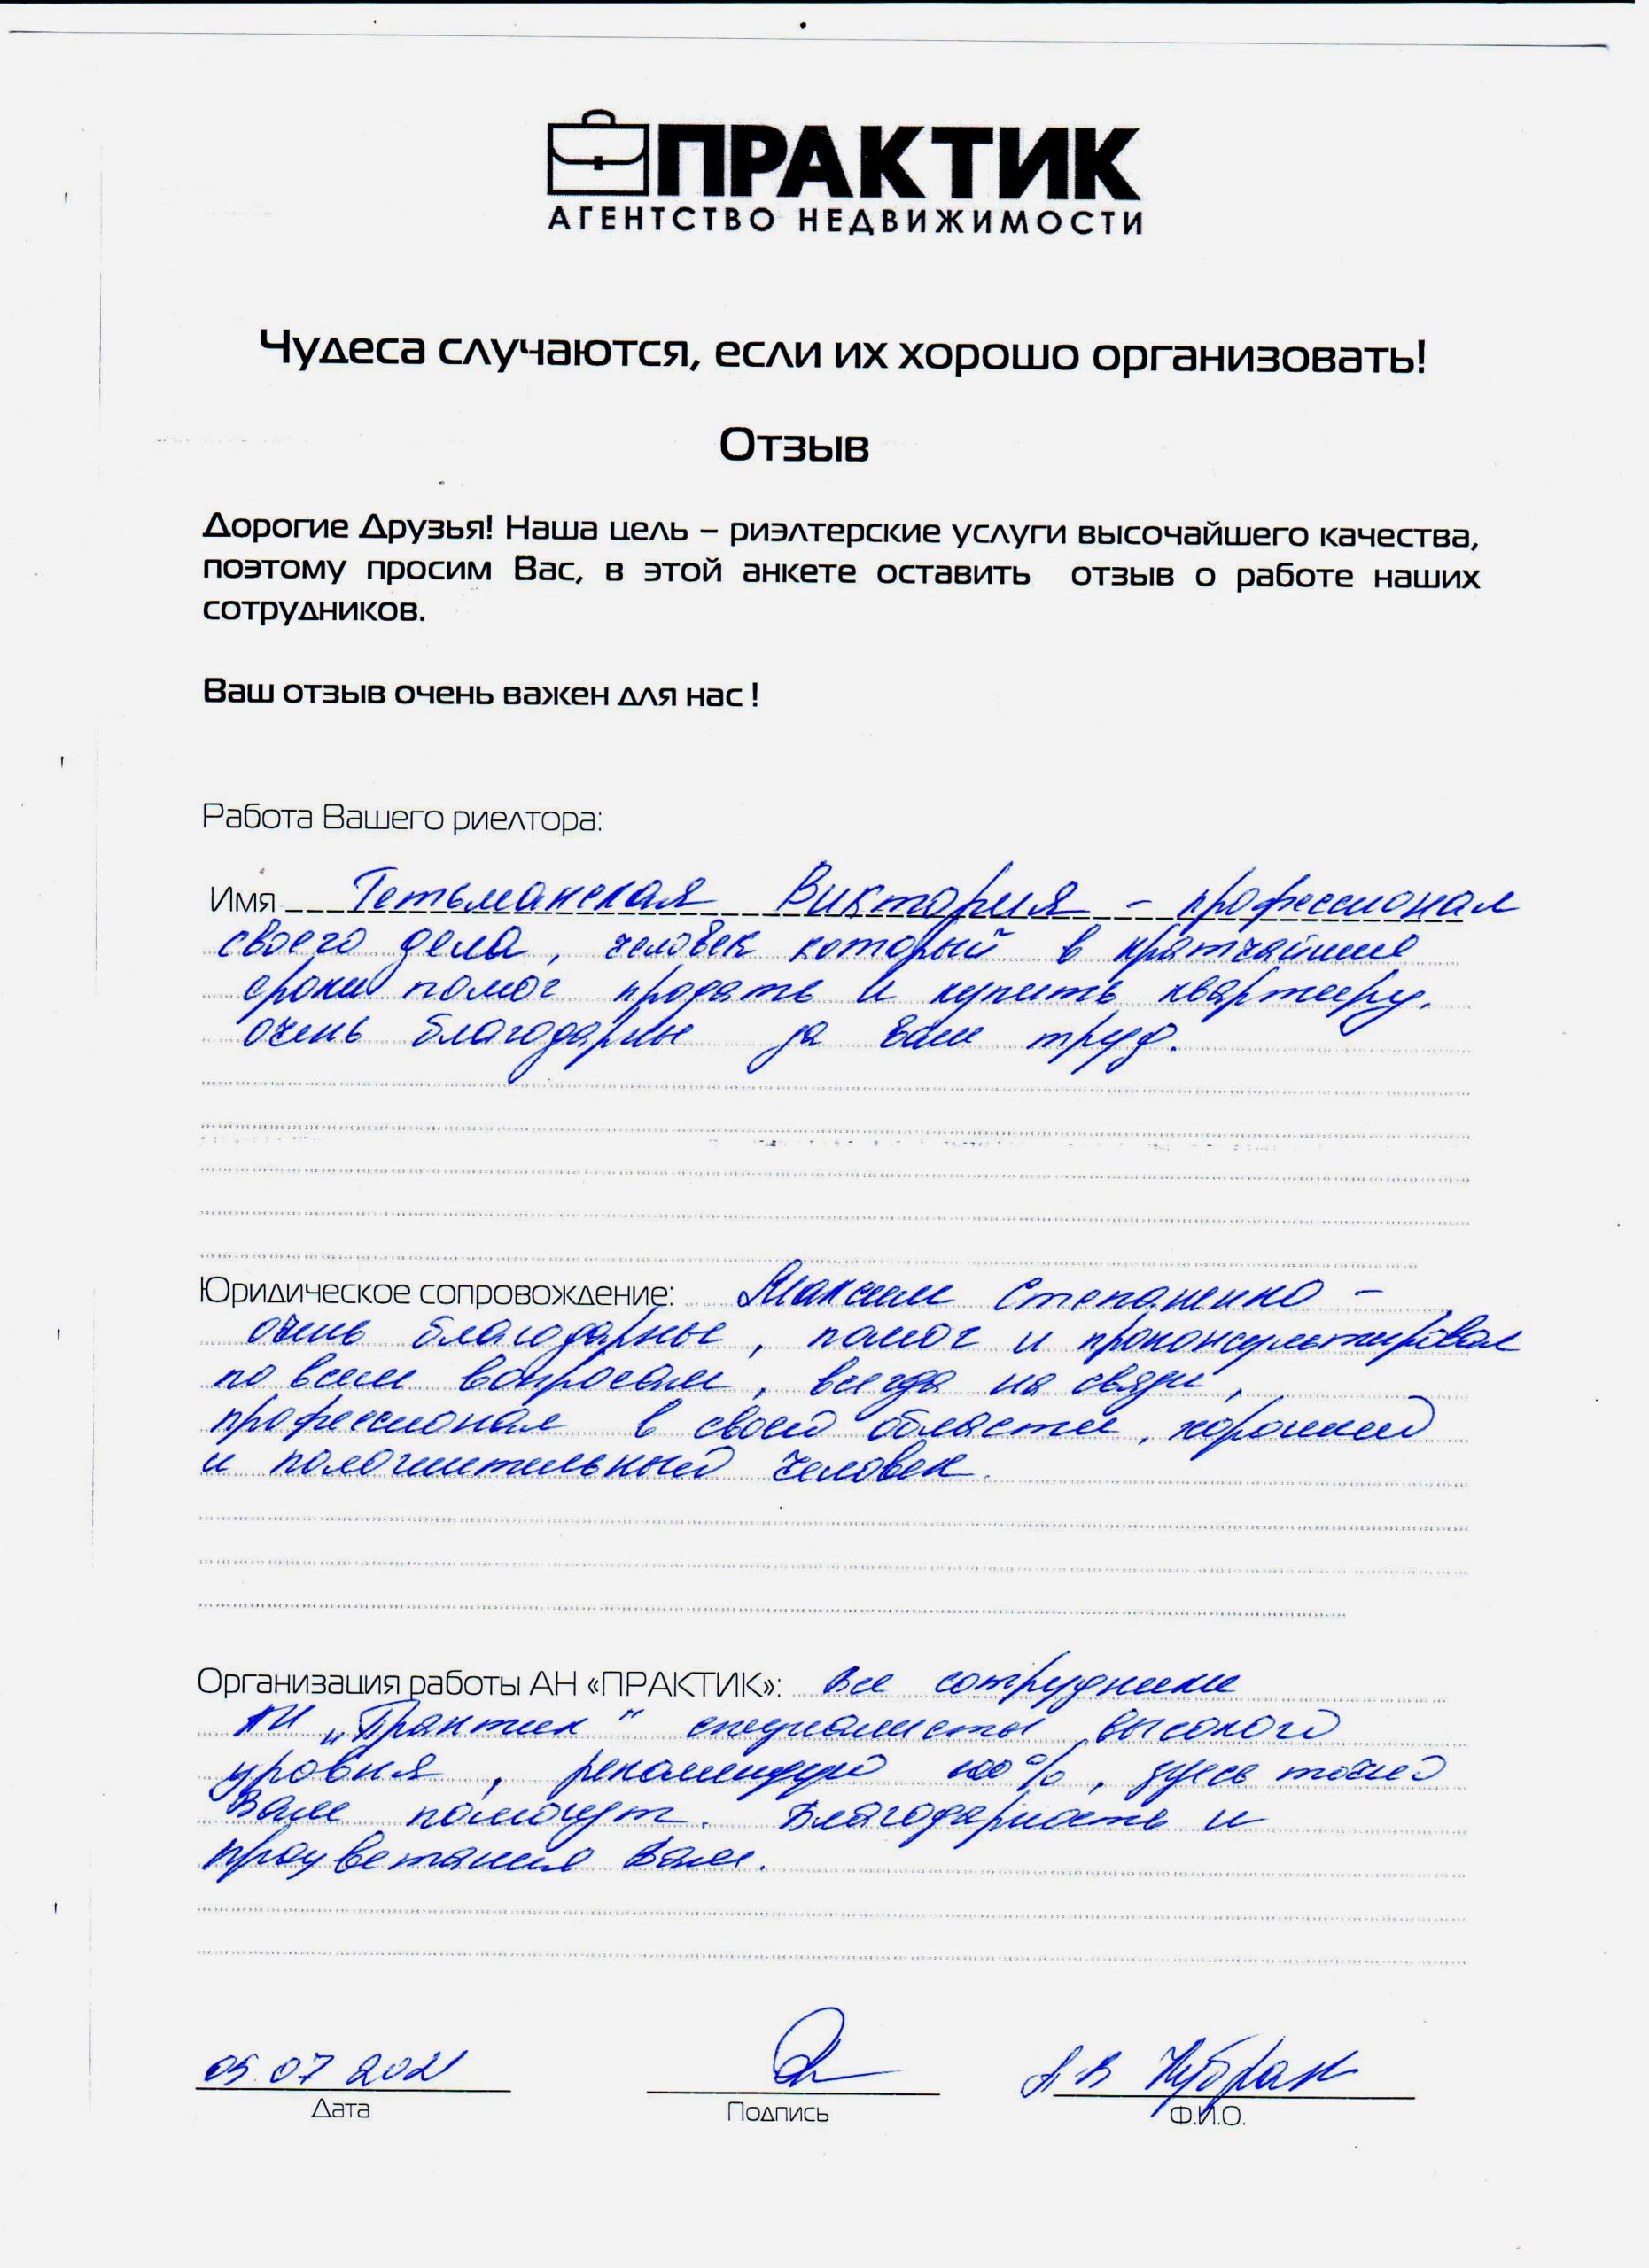 ПРАКТИК
АГЕНТСТВО НЕДВИЖИМОСТИ
Чудеса случаются, если их хорошо организовать!
Отзыв
Дорогие Друзья! Наша цель – риэлтерские услуги высочайшего качества,
поэтому просим Вас, в этой анкете оставить отзыв о работе наших
сотрудников.
Ваш отзыв очень важен для нас !
Работа Вашего риелтора:
Имя Гетьманская Виктория - профессионал
своего дела, человек который в кратчайшие
сроки помог продать и купить квартиру.
очень благодарны за ваш труд.
Юридическое сопровождение: Максим Степаненко -
очень благодарны, помог и проконсультировал
по всем вопросам, всегда на связи,
профессионал в своей области, хороший
и положительный человек.
Организация работы АН «ПРАКТИК»: Все сотрудники
АН „Практик" специалисты высокого
уровня, рекомендую 100%, здесь точно
Вам помогут. Благодарность и
процветания Вам.
05.07 2021
Дата
Подпись
Ф.И.О.